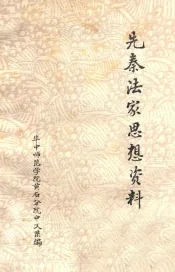 先秦法家思想资料
华中师范学院黄石分院中文系编